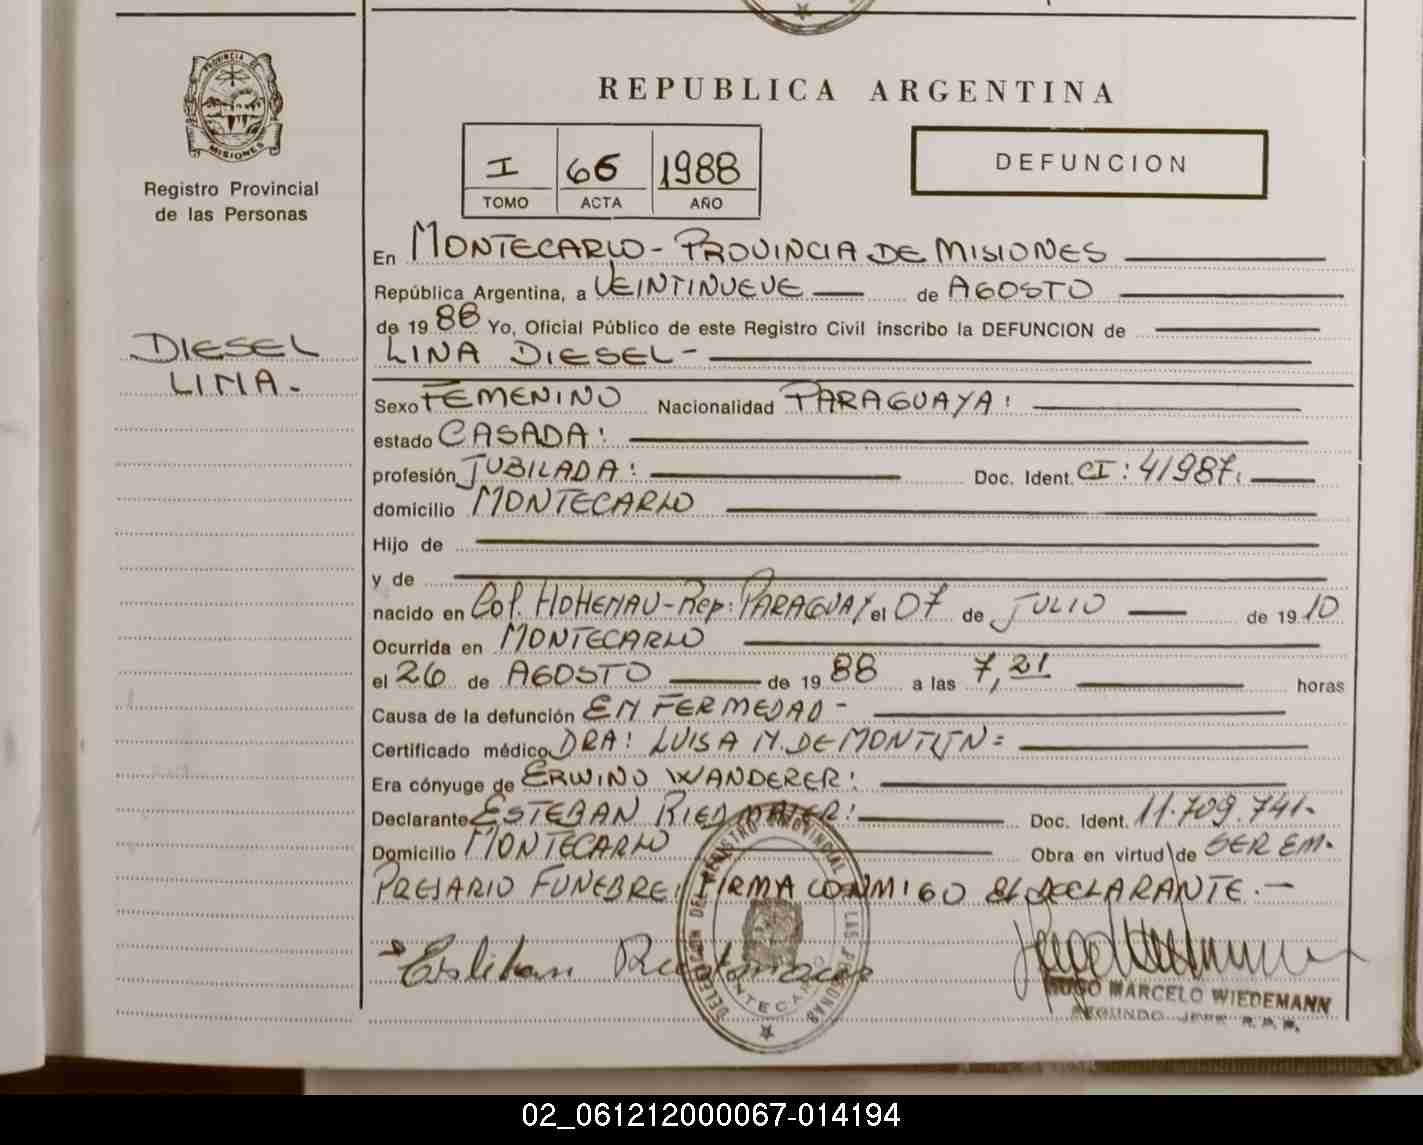 REPUBLICA ARGENTINA
PROVINCIA DE
MISIONES
Registro Provincial
de las Personas
I 66 1988
TOMO ACTA AÑO
DEFUNCION
En MONTECARLO - PROVINCIA DE MISIONES
República Argentina, a VEINTINUEVE de AGOSTO
de 19 88 Yo, Oficial Público de este Registro Civil inscribo la DEFUNCION de
LINA DIESEL -
DIESEL
LINA.-
Sexo FEMENINO Nacionalidad PARAGUAYA:
estado CASADA:
profesión JUBILADA: Doc. Ident. CI: 41987.
domicilio MONTECARLO
Hijo de
y de
nacido en Col. HOHENAU - Rep: PARAGUAY el 07 de JULIO de 19 10
Ocurrida en MONTECARLO
el 26 de AGOSTO de 19 88 a las 7,21 horas
Causa de la defunción ENFERMEDAD -
Certificado médico DRA: LUISA M. DE
Era cónyuge de ERWINO WANDERER:
Declarante ESTEBAN RIEDMAIER: Doc. Ident. 11.709.741.
Domicilio MONTECARLO Obra en virtud de SER EM-
PRESARIO FUNEBRE: FIRMA CONMIGO EL DECLARANTE.-
Esteban
DELEGACION DEL REGISTRO PROVINCIAL DE LAS PERSONAS
MONTECARLO
HUGO MARCELO WIEDEMANN
SEGUNDO JEFE R.P.P.
02_061212000067-014194